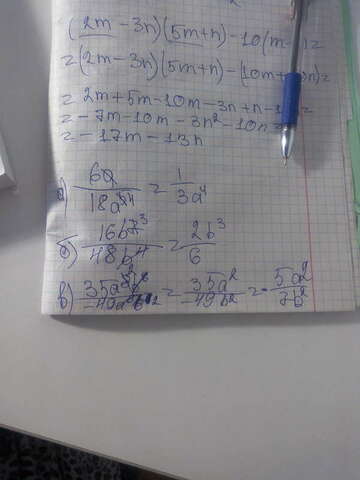 (2m - 3n)(5m+n) - 10(m-
=(2m - 3n)(5m+n) - (10m+
= 2m+5m-10m-3n+n-
= -7m-10m-3n²-10n=
= -17m-13n
а) 6a/18a⁴ = 1/3a⁴
б) 16b³/48b⁴ = 2b³/6
в) = 35a²/-49b² = -5a²/7b²